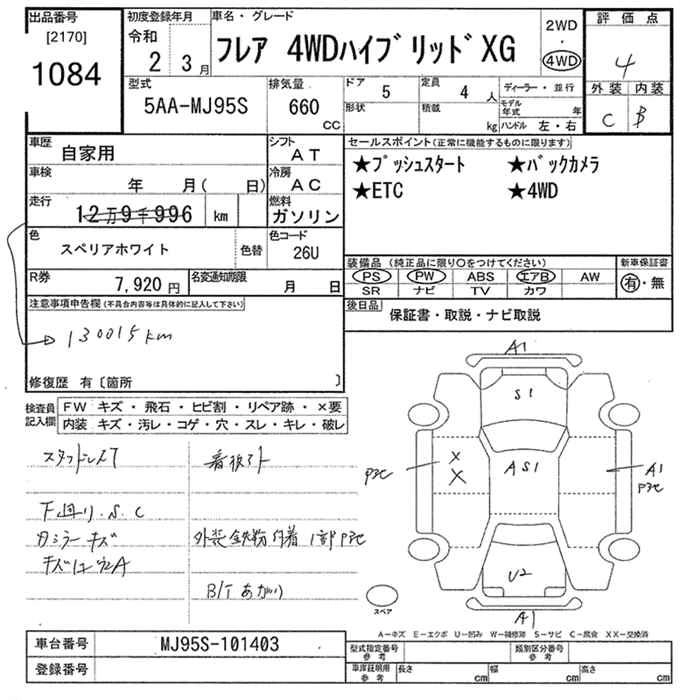 出品番号
[2170]
1084
初度登録年月
令和
2 3月
車名・グレード
フレア 4WDハイブリッドXG
2WD
・
4WD
評価点
4
外装 内装
C B
型式
5AA-MJ95S
排気量
660
CC
ドア 5
形状
定員 4 人
積載 kg
ディーラー・並行
モデル年式 年
ハンドル 左・右
車歴
自家用
シフト
AT
車検
年 月( 日)
冷房
AC
走行
12万9千996 km
燃料
ガソリン
色
スペリアホワイト
色替
色コード
26U
R券
7,920円
名変通知期限
月 日
注意事項申告欄(不具合内容等は具体的に記入して下さい)
130015km
修復歴 有〔箇所 〕
セールスポイント(正常に機能するものに限ります)
★プッシュスタート ★バックカメラ
★ETC ★4WD
装備品(純正品に限り○をつけてください)
PS PW ABS エアB AW
SR ナビ TV カワ
新車保証書
有・無
後日品
保証書・取説・ナビ取説
検査員記入欄
FW キズ・飛石・ヒビ割・リペア跡・×要
内装 キズ・汚レ・コゲ・穴・スレ・キレ・破レ
スタッドレス
看板アト
下廻り.S.C
ミラーキズ
外装鉄粉付着 1部Pタヒ
B/Tあがり
A1
S1
AS1
×
×
A1
U2
A1
スペア
A―キズ E―エクボ U―凹み W―補修跡 S―サビ C―腐食 XX―交換済
車台番号
MJ95S-101403
登録番号
型式指定番号
参考
類別区分番号
参考
車庫証明用
参考
長さ cm
幅 cm
高さ cm